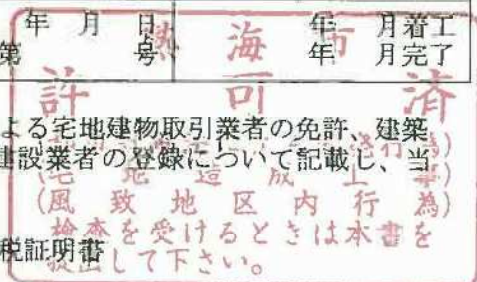 年 月 日 年 月着工
第 号 年 月完了
熱海市
許可済
よる宅地建物取引業者の免許、建築
建設業者の登録について記載し、当
(宅地造成工事)
(風致地区内行為)
検査を受けるときは本書を
税証明書
提出して下さい。